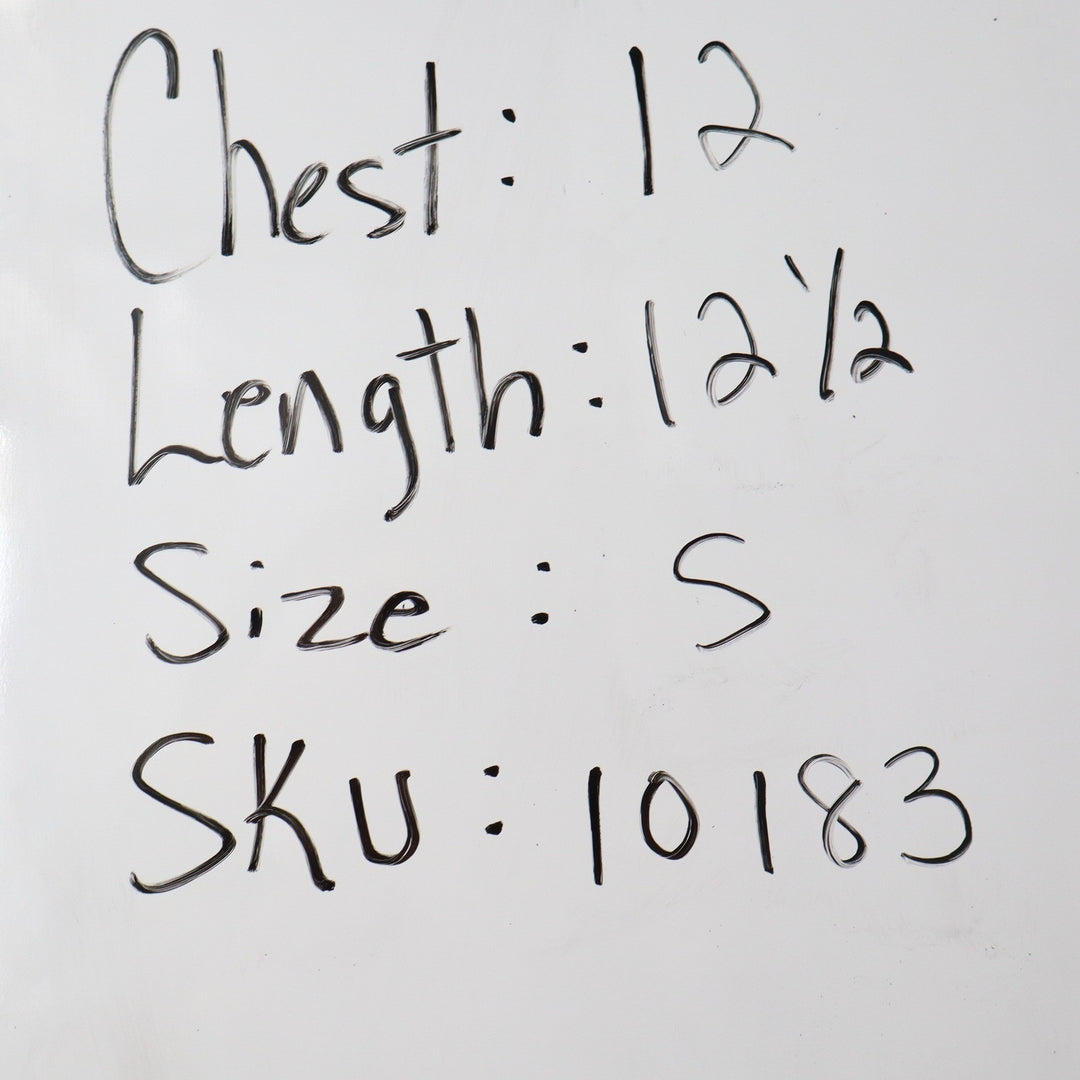 Chest: 12
Length: 12 1/2
Size: S
SKU: 10183